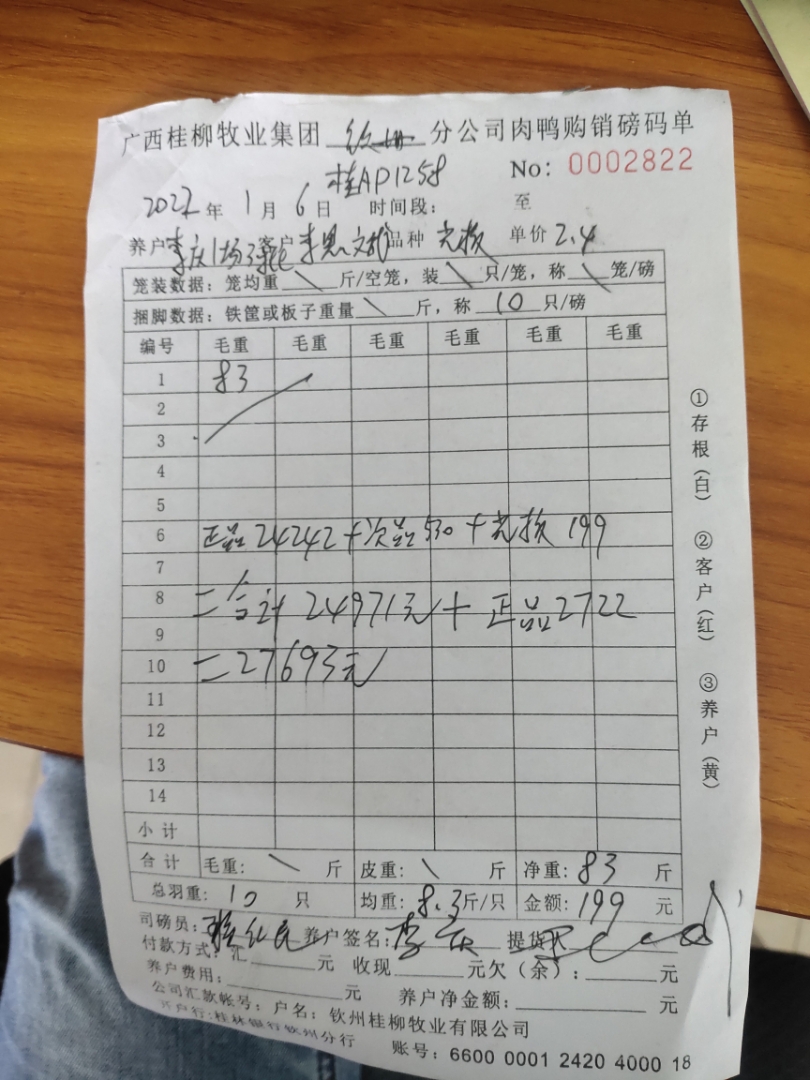 广西桂柳牧业集团 钦州 分公司肉鸭购销磅码单
桂AP1258 No: 0002822
2022年 1月 6日 时间段: 至
养户 李庆1场 客户 李思文 品种 单价 2.4
笼装数据: 笼均重 \ 斤/空笼, 装 \ 只/笼, 称 \ 笼/磅
捆脚数据: 铁筐或板子重量 \ 斤, 称 10 只/磅
编号 毛重 毛重 毛重 毛重 毛重 毛重
1 83
2
3
4
5
6 正品24242+次品530+ 199
7
8 =合计 24971元+正品2722
9
10 =27693元
11
12
13
14
小计
合计 毛重: \ 斤 皮重: \ 斤 净重: 83 斤
总羽重: 10 只 均重: 8.3斤/只 金额: 199 元
司磅员: 养户签名: 李庆 提货人
付款方式: 汇 元 收现 元欠(余): 元
养户费用: 元 养户净金额: 元
公司汇款帐号: 户名: 钦州桂柳牧业有限公司
开户行: 桂林银行钦州分行 账号: 6600 0001 2420 4000 18
①存根(白) ②客户(红) ③养户(黄)